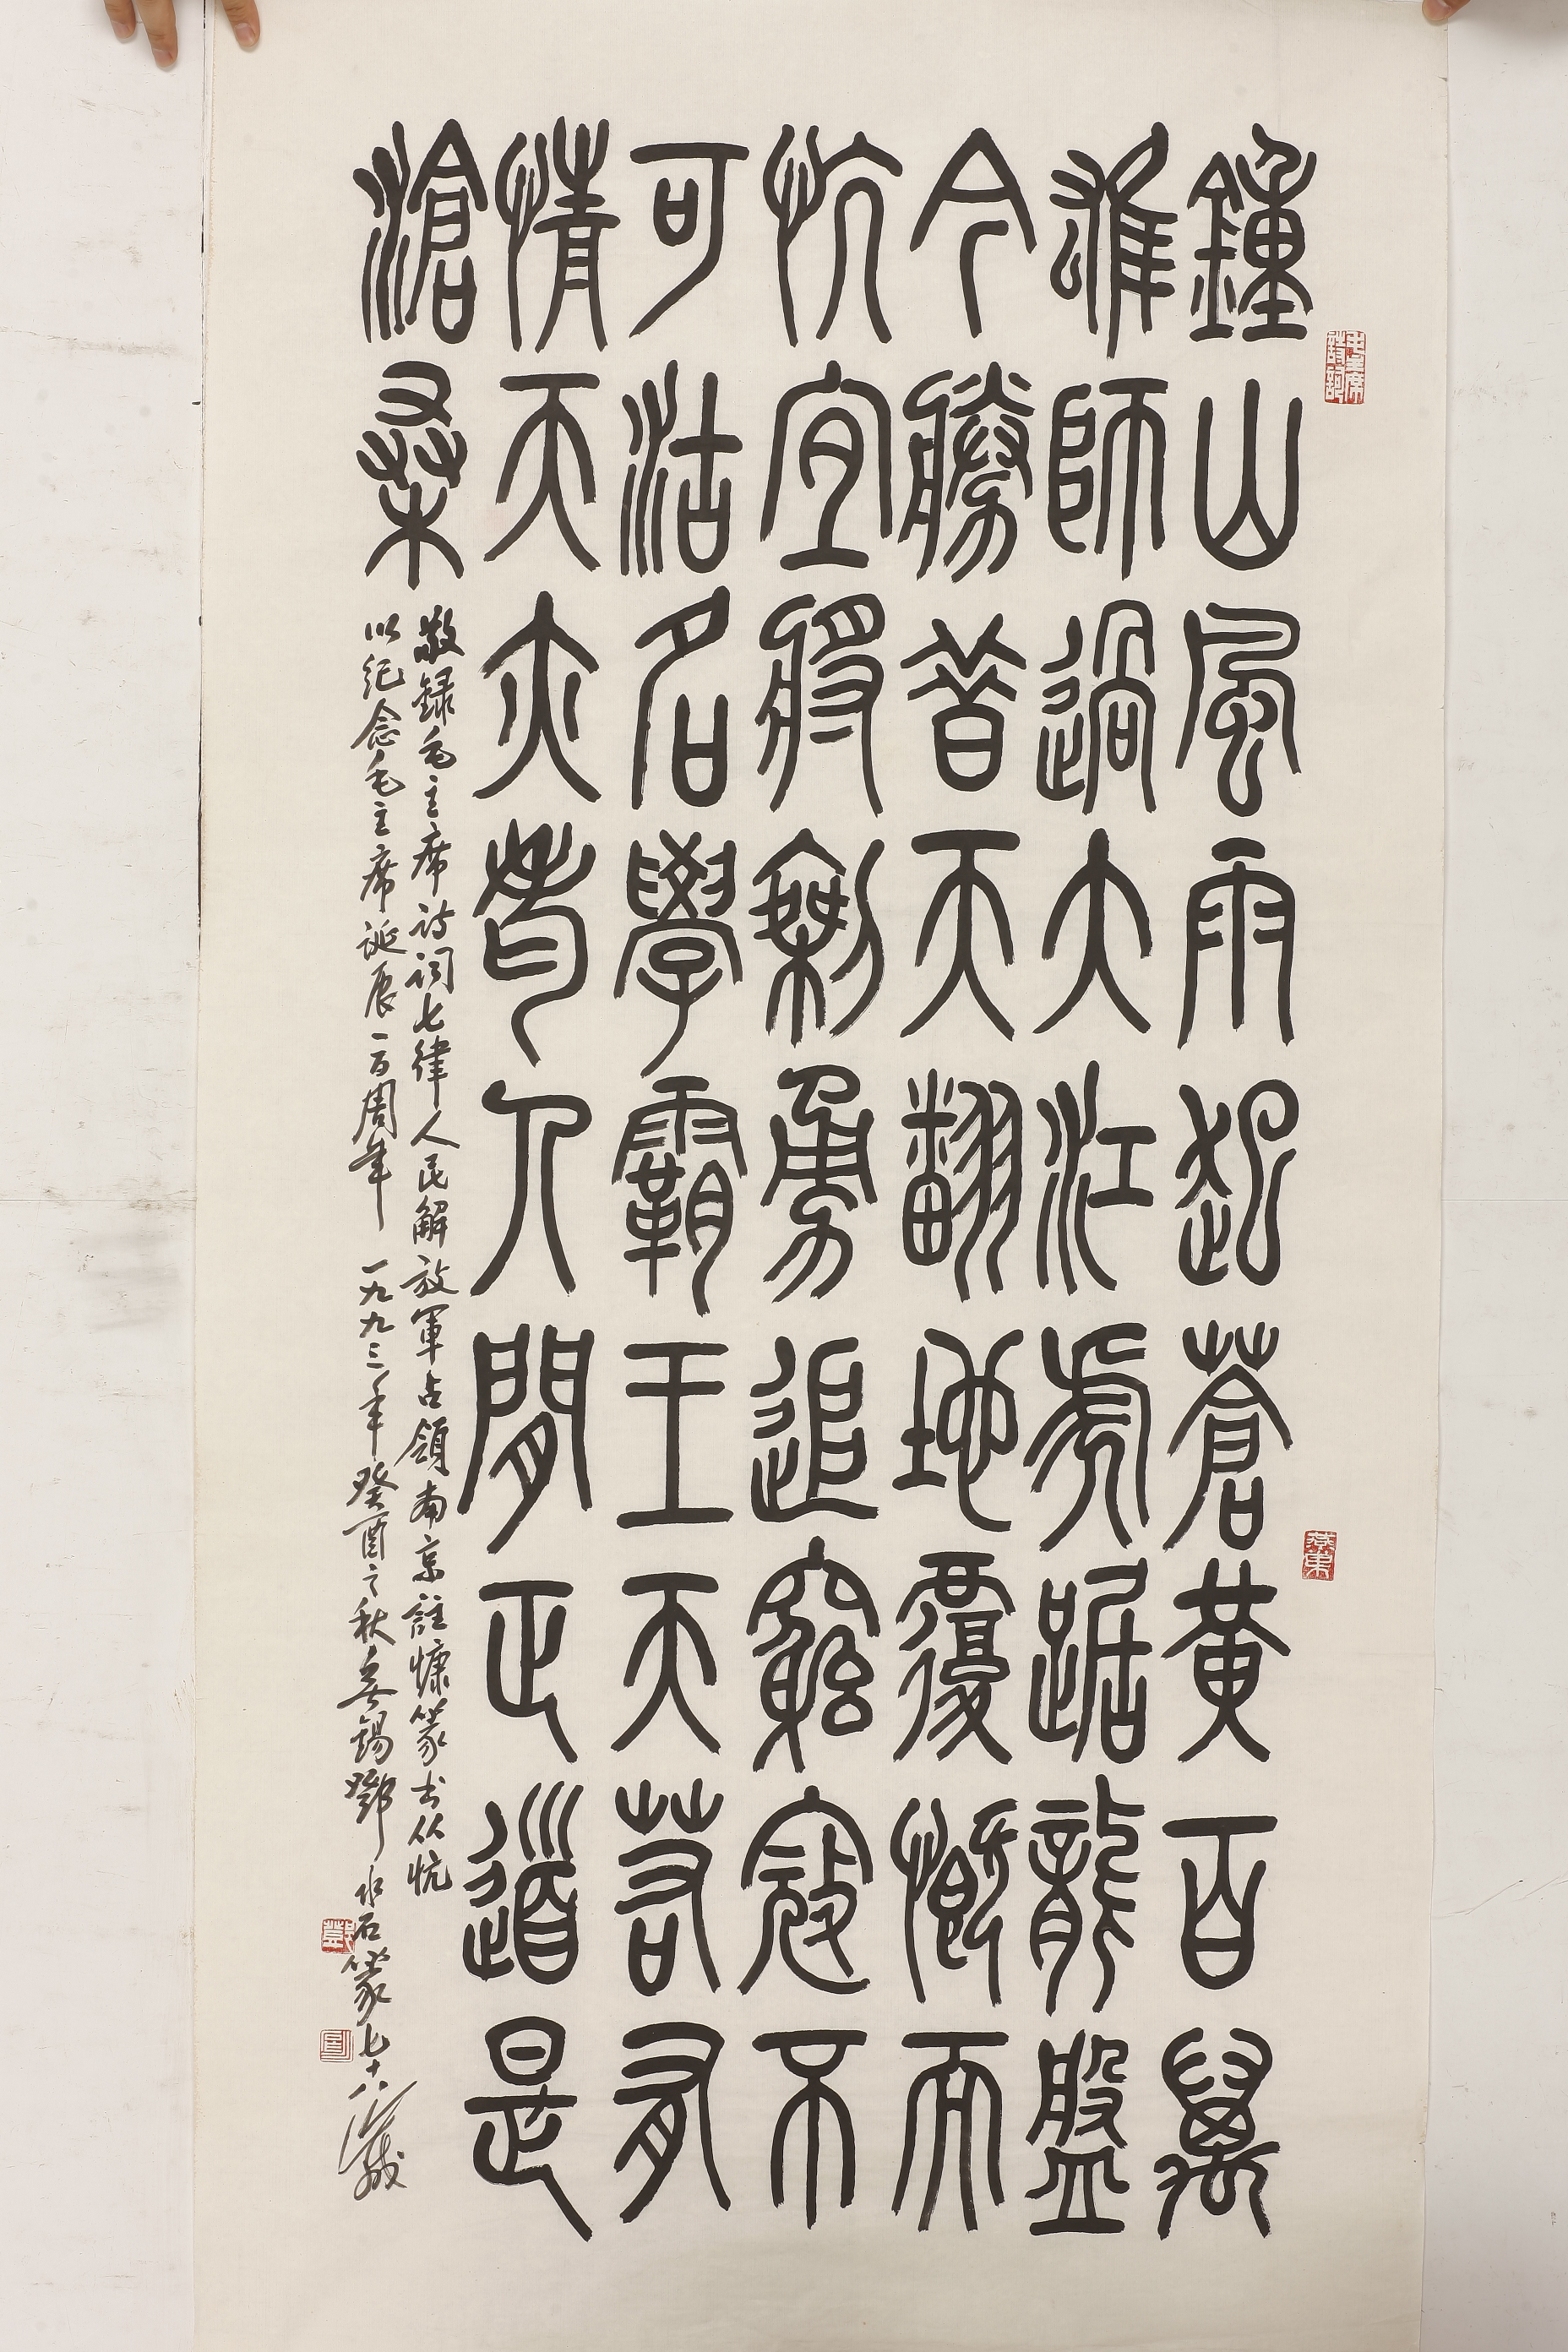 鍾山風雨起蒼黃百萬
雄師過大江虎踞龍盤
今勝昔天翻地覆慨而
忼宜將剩勇追窮寇不
可沽名學霸王天若有
情天亦老人間正道是
滄桑
敬録毛主席诗词七律人民解放軍占領南京註慷篆书从忼
以纪念毛主席诞辰一百周年 一九九三年癸酉之秋無錫鄧水石篆七十八歲
毛主席詩詞